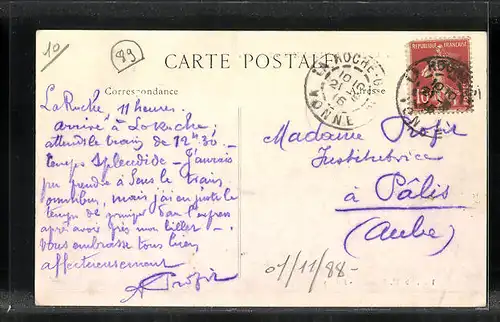 10
89
CARTE POSTALE
Correspondance
Adresse
LA ROCHE
10 15
21
16
YONNE
REPUBLIQUE FRANÇAISE
10
La Roche 11 heures.
Arrivé à La Roche:
attends le train de 12h30.
Temps Splendide - J'aurais
pu prendre à Sens le train
omnibus, mais j'ai eu juste le
temps de dans l'express
après avoir pris mon billet -
Vous embrasse tous bien
affectueusement
Profit
Madame Profit
Institutrice
à Pâlis
(Aube)
01/11/88-